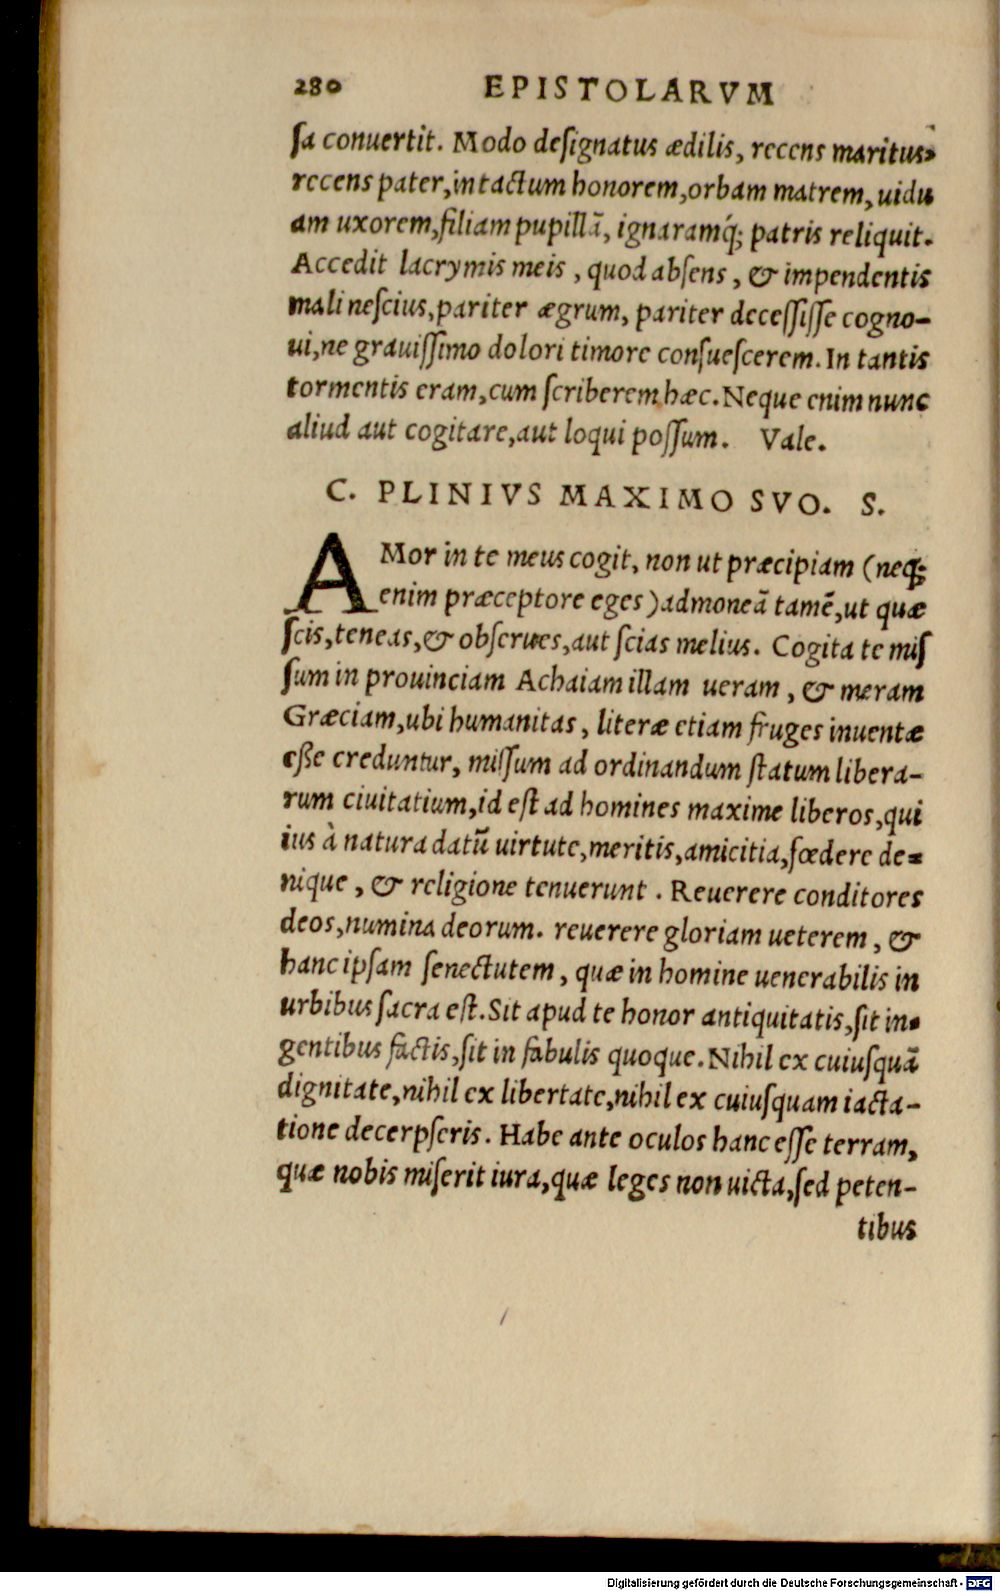 280 EPISTOLARVM
ſa conuertit. Modo deſignatus ædilis, recens maritus,
recens pater, intactum honorem, orbam matrem, uidu
am uxorem, filiam pupillā, ignaramq́; patris reliquit.
Accedit lacrymis meis, quod abſens, & impendentis
mali neſcius, pariter ægrum, pariter deceſſiſſe cogno-
ui, ne grauiſſimo dolori timore conſueſcerem. In tantis
tormentis eram, cum ſcriberem hæc. Neque enim nunc
aliud aut cogitare, aut loqui poſſum. Vale.
C. PLINIVS MAXIMO SVO. S.
AMor in te meus cogit, non ut præcipiam (neq;
enim præceptore eges) admoneā tamē, ut quæ
ſcis, teneas, & obſerues, aut ſcias melius. Cogita te miſ
ſum in prouinciam Achaiam illam ueram, & meram
Græciam, ubi humanitas, literæ etiam fruges inuentæ
eße creduntur, miſſum ad ordinandum ſtatum libera-
rum ciuitatium, id eſt ad homines maxime liberos, qui
ius à natura datū uirtute, meritis, amicitia, fœdere de=
nique, & religione tenuerunt. Reuerere conditores
deos, numina deorum. reuerere gloriam ueterem, &
hanc ipſam ſenectutem, quæ in homine uenerabilis in
urbibus ſacra eſt. Sit apud te honor antiquitatis, ſit in-
gentibus factis, ſit in fabulis quoque. Nihil ex cuiuſquā
dignitate, nihil ex libertate, nihil ex cuiuſquam iacta-
tione decerpſeris. Habe ante oculos hanc eſſe terram,
quæ nobis miſerit iura, quæ leges non uicta, ſed peten-
tibus
Digitalisierung gefördert durch die Deutsche Forschungsgemeinschaft - DFG